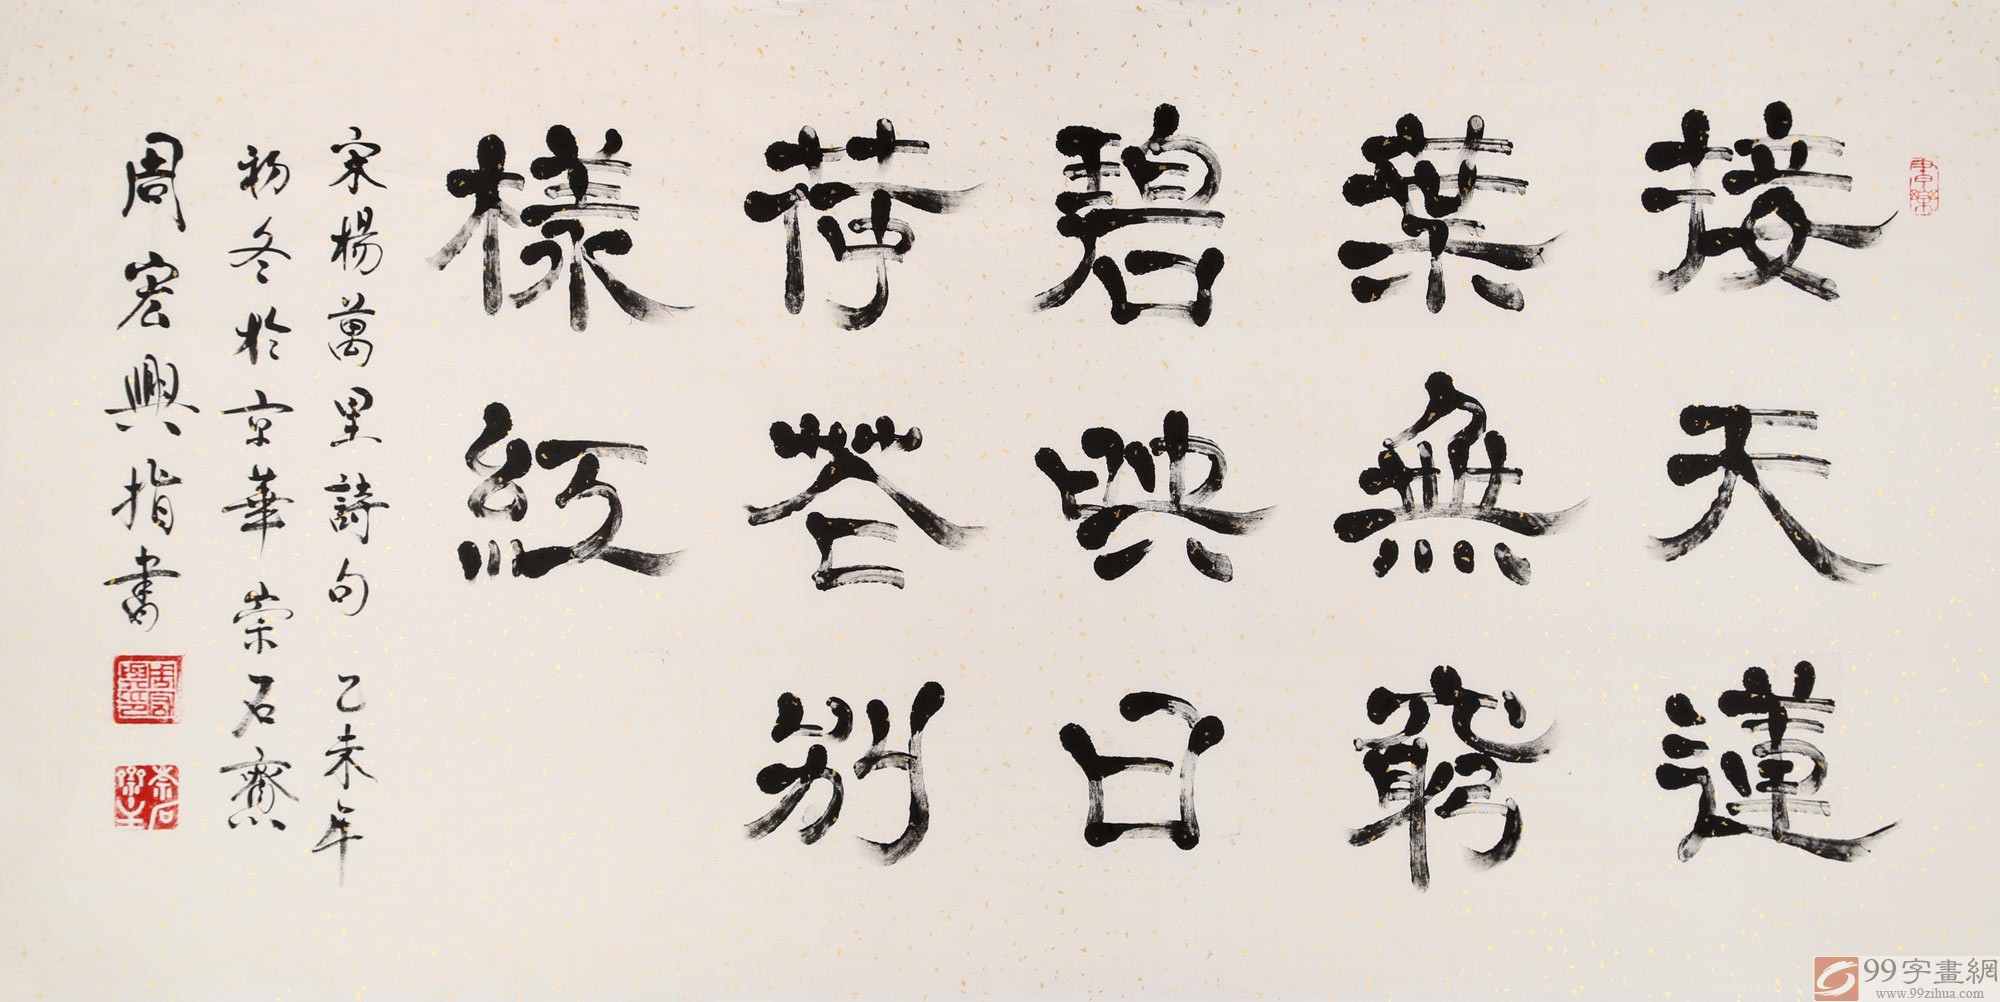 接天蓮
葉無窮
碧映日
荷花別
樣紅
宋楊萬里詩句 乙未年
初冬於京華崇石齋
周宏興指書
99字畫網
www.99zihua.com